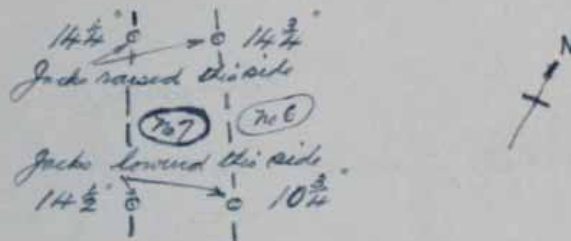 14 1/4" 14 3/4"
Jacks raised this side
No 7 No 6
Jacks lowered this side
14 1/2" 10 3/4"
N